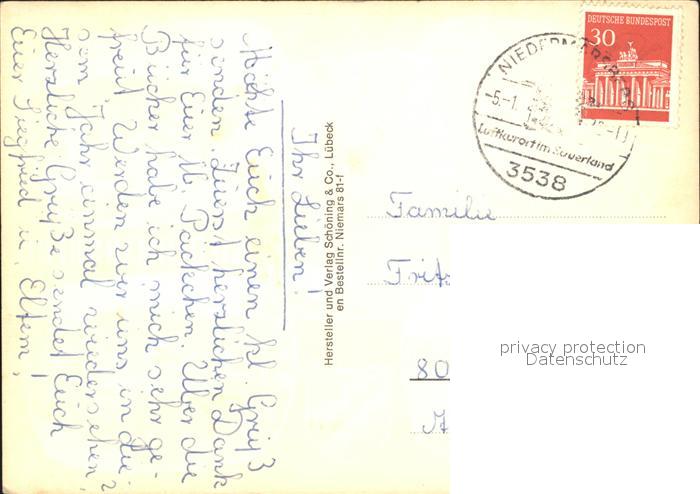 Ihr Lieben!
Möchte Euch einen kl. Gruß
senden. Zuerst herzlichen Dank
für Euer lb. Päckchen. Über die
Bücher habe ich mich sehr ge-
freut. Werden wir uns in die-
sem Jahr einmal wiedersehen?
Herzliche Grüße sendet Euch
Euer Siegfried u. Eltern!
Hersteller und Verlag Schöning & Co., Lübeck
en Bestellnr. Niemars 81-f
DEUTSCHE BUNDESPOST
30
NIEDERMARSBERG
-5.-1.
Luftkurort im Sauerland
3538
Familie
Fritz
80
A
privacy protection
Datenschutz